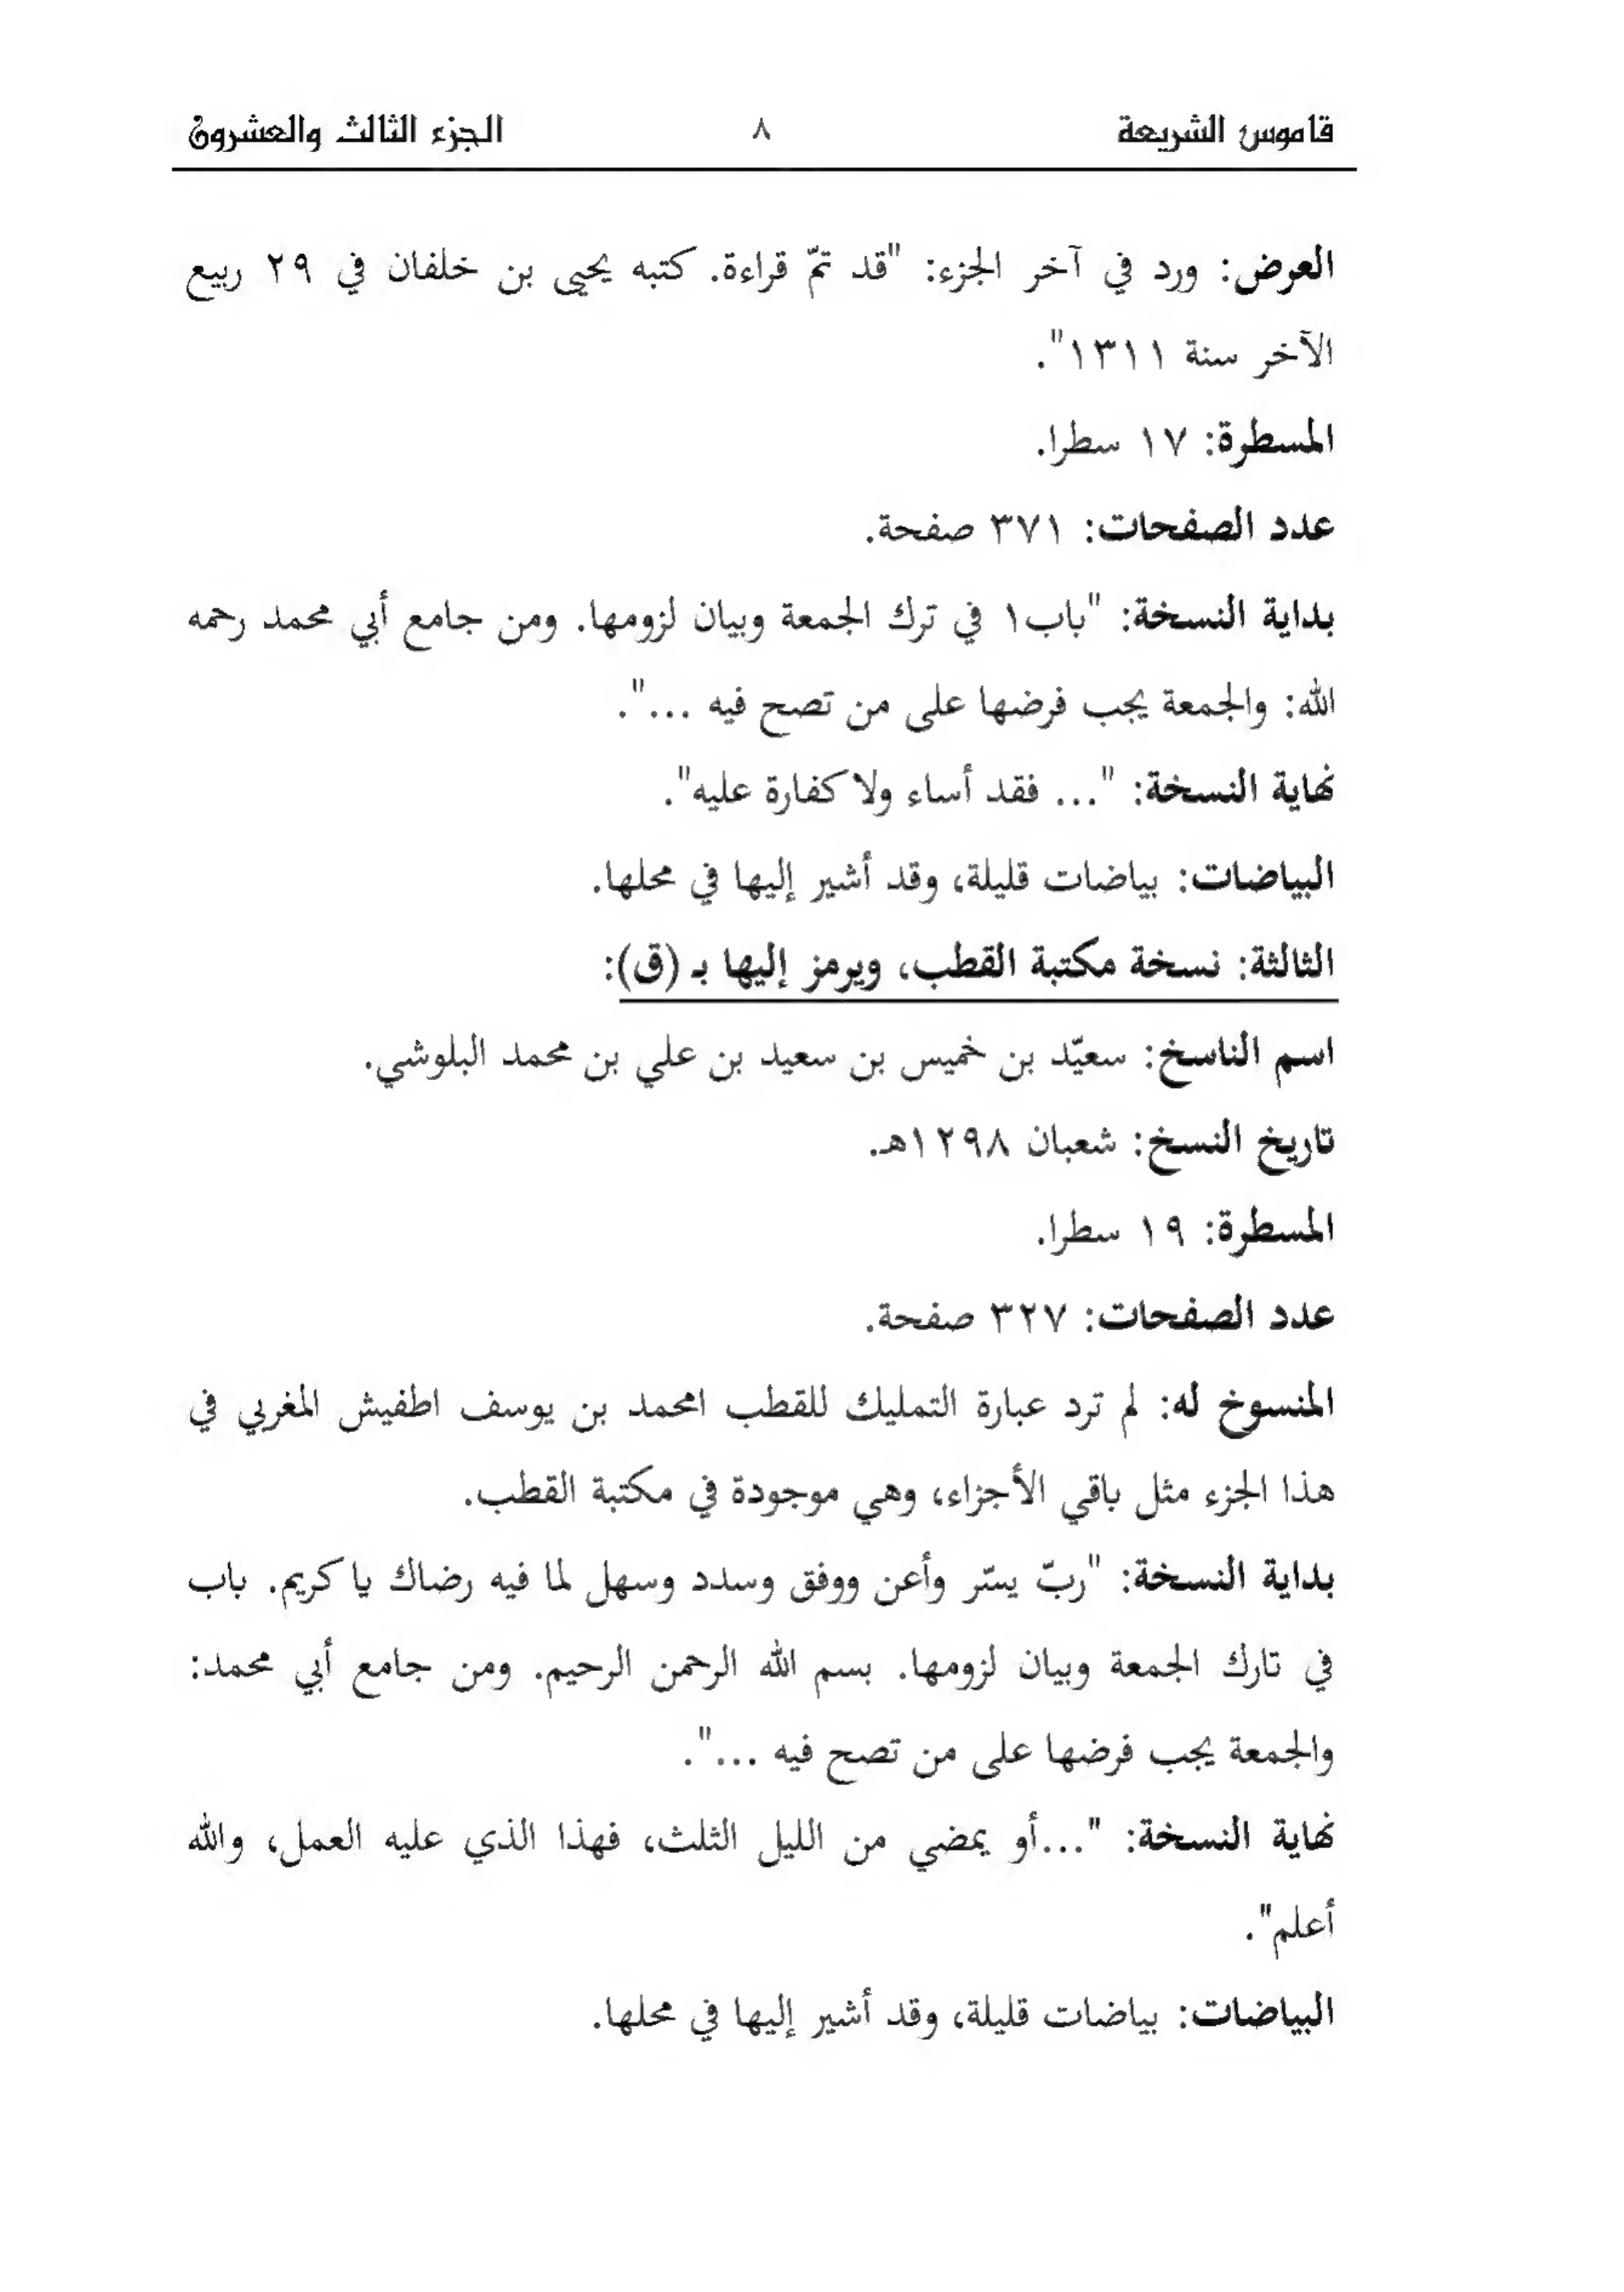 قاموس الشريعة ٨ الجزء الثالث والعشرون
العرض: ورد في آخر الجزء: "قد تمّ قراءة. كتبه يحيى بن خلفان في ٢٩ ربيع
الآخر سنة ١٣١١".
المسطرة: ١٧ سطرا.
عدد الصفحات: ٣٧١ صفحة.
بداية النسخة: "باب١ في ترك الجمعة وبيان لزومها. ومن جامع أبي محمد رحمه
الله: والجمعة يجب فرضها على من تصح فيه ...".
نهاية النسخة: "... فقد أساء ولا كفارة عليه".
البياضات: بياضات قليلة، وقد أشير إليها في محلها.
الثالثة: نسخة مكتبة القطب، ويرمز إليها بـ (ق):
اسم الناسخ: سعيّد بن خميس بن سعيد بن علي بن محمد البلوشي.
تاريخ النسخ: شعبان ١٢٩٨هـ.
المسطرة: ١٩ سطرا.
عدد الصفحات: ٣٢٧ صفحة.
المنسوخ له: لم ترد عبارة التمليك للقطب امحمد بن يوسف اطفيش المغربي في
هذا الجزء مثل باقي الأجزاء، وهي موجودة في مكتبة القطب.
بداية النسخة: "ربّ يسّر وأعن ووفق وسدد وسهل لما فيه رضاك يا كريم. باب
في تارك الجمعة وبيان لزومها. بسم الله الرحمن الرحيم. ومن جامع أبي محمد:
والجمعة يجب فرضها على من تصح فيه ...".
نهاية النسخة: "...أو يمضي من الليل الثلث، فهذا الذي عليه العمل، والله
أعلم".
البياضات: بياضات قليلة، وقد أشير إليها في محلها.